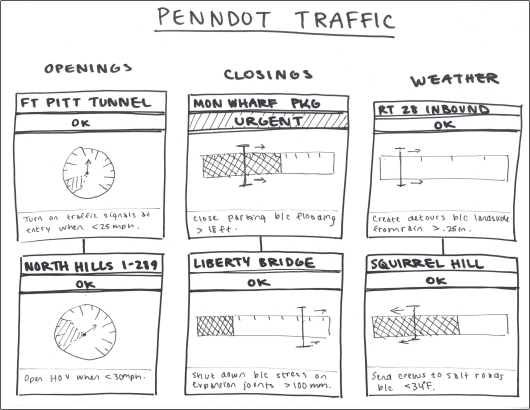 PENNDOT TRAFFIC
OPENINGS
CLOSINGS
WEATHER
FT PITT TUNNEL
OK
Turn on traffic signals at
entry when <25mph.
NORTH HILLS I-289
OK
Open HOV when <30mph.
MON WHARF PKG
URGENT
Close parking b/c flooding
> 18ft.
LIBERTY BRIDGE
OK
Shut down b/c stress on
expansion joints >100mm.
RT 28 INBOUND
OK
Create detours b/c landslide
from rain > .25in.
SQUIRREL HILL
OK
Send crews to salt roads
b/c <34°F.